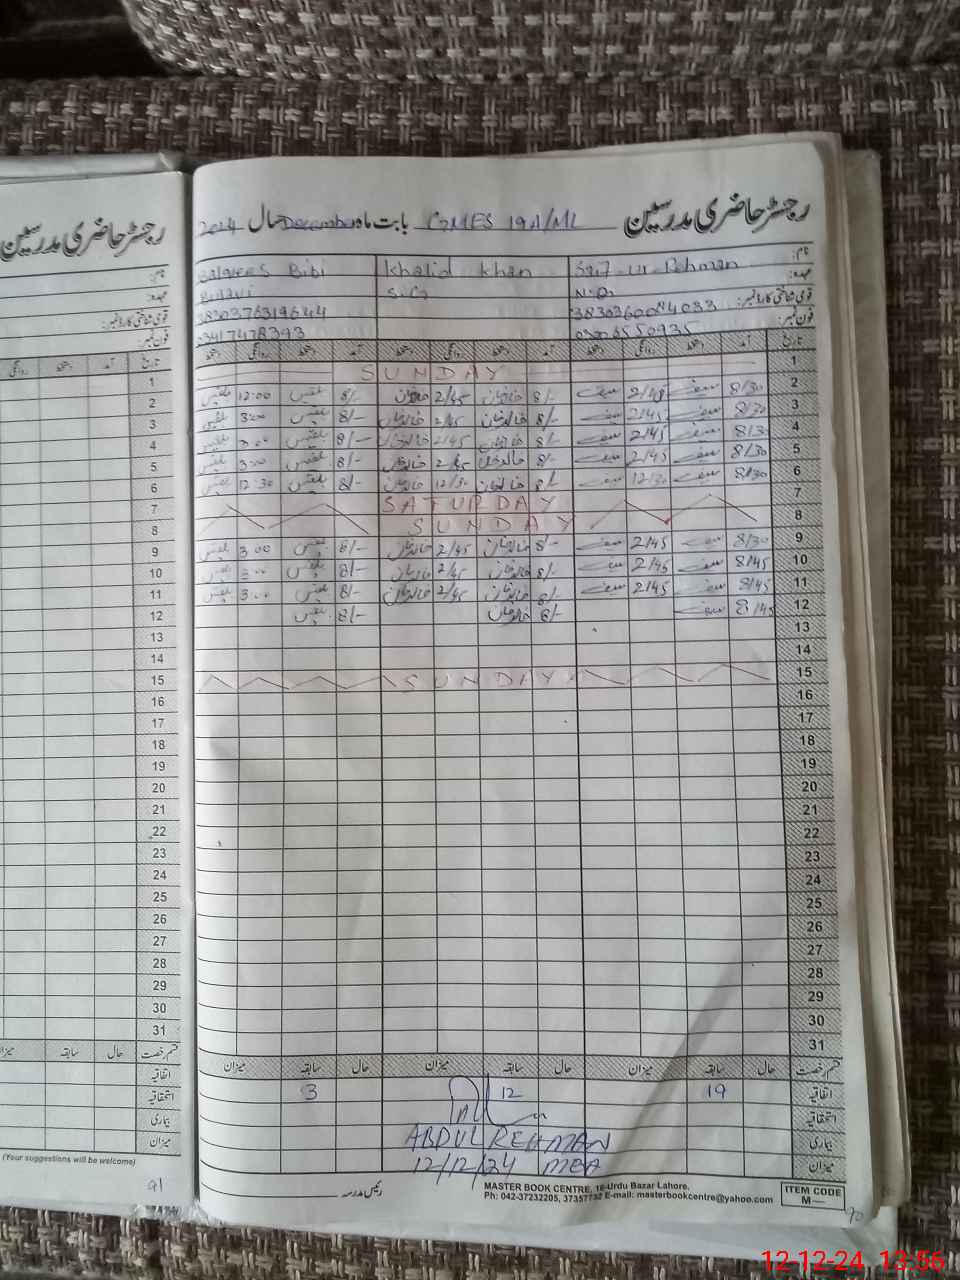 رجسٹر حاضری مدرسین
رجسٹر حاضری مدرسین بابت ماہ GGMES 19A/ML December سال 2024
نام: Saif-ur-Rehman Khalid Khan Balqees Bibi
عہدہ: N.Q S.G Bulavi
قومی شناختی کارڈ نمبر: 3830376319644
فون نمبر: 03417478393
تاریخ آمد دستخط روانگی دستخط آمد دستخط روانگی دستخط آمد دستخط روانگی دستخط
1 SUNDAY
2 8/30 سیف 2/45 سیف 8/- خالدخان 2/45 خالدخان 8/- بلقیس 12:00 بلقیس
3 8/30 سیف 2/45 سیف 8/- خالدخان 2/45 خالدخان 8/- بلقیس 3:00 بلقیس
4 8/30 سیف 2/45 سیف 8/- خالدخان 2/45 خالدخان 8/- بلقیس 3:00 بلقیس
5 8/30 سیف 2/45 سیف 8/- خالدخان 2/45 خالدخان 8/- بلقیس 3:00 بلقیس
6 8/30 سیف 12/30 سیف 8/- خالدخان 12/30 خالدخان 8/- بلقیس 12:30 بلقیس
7 SATURDAY
8 SUNDAY
9 8/30 سیف 2/45 سیف 8/- خالدخان 2/45 خالدخان 8/- بلقیس 3:00 بلقیس
10 8/45 سیف 2/45 سیف 8/- خالدخان 2/45 خالدخان 8/- بلقیس 3:00 بلقیس
11 8/45 سیف 2/45 سیف 8/- خالدخان 2/45 خالدخان 8/- بلقیس 3:00 بلقیس
12 8/45 سیف 8/- خالدخان 8/- بلقیس
13
14
15 SUNDAY
16
17
18
19
20
21
22
23
24
25
26
27
28
29
30
31
قسم رخصت حال سابقہ میزان حال سابقہ میزان حال سابقہ میزان
اتفاقیہ 19 12 3
استحقاقیہ
بیماری
میزان
ABDUL REHMAN
12/12/24 MEA
رئیس مدرسہ
MASTER BOOK CENTRE, 16-Urdu Bazar Lahore.
Ph: 042-37232205, 37357732 E-mail: masterbookcentre@yahoo.com
ITEM CODE
M—
90
نام:
عہدہ:
قومی شناختی کارڈ نمبر:
فون نمبر:
تاریخ آمد دستخط روانگی
1
2
3
4
5
6
7
8
9
10
11
12
13
14
15
16
17
18
19
20
21
22
23
24
25
26
27
28
29
30
31
قسم رخصت حال سابقہ میزان
اتفاقیہ
استحقاقیہ
بیماری
میزان
(Your suggestions will be welcome)
91
12-12-24 13:56